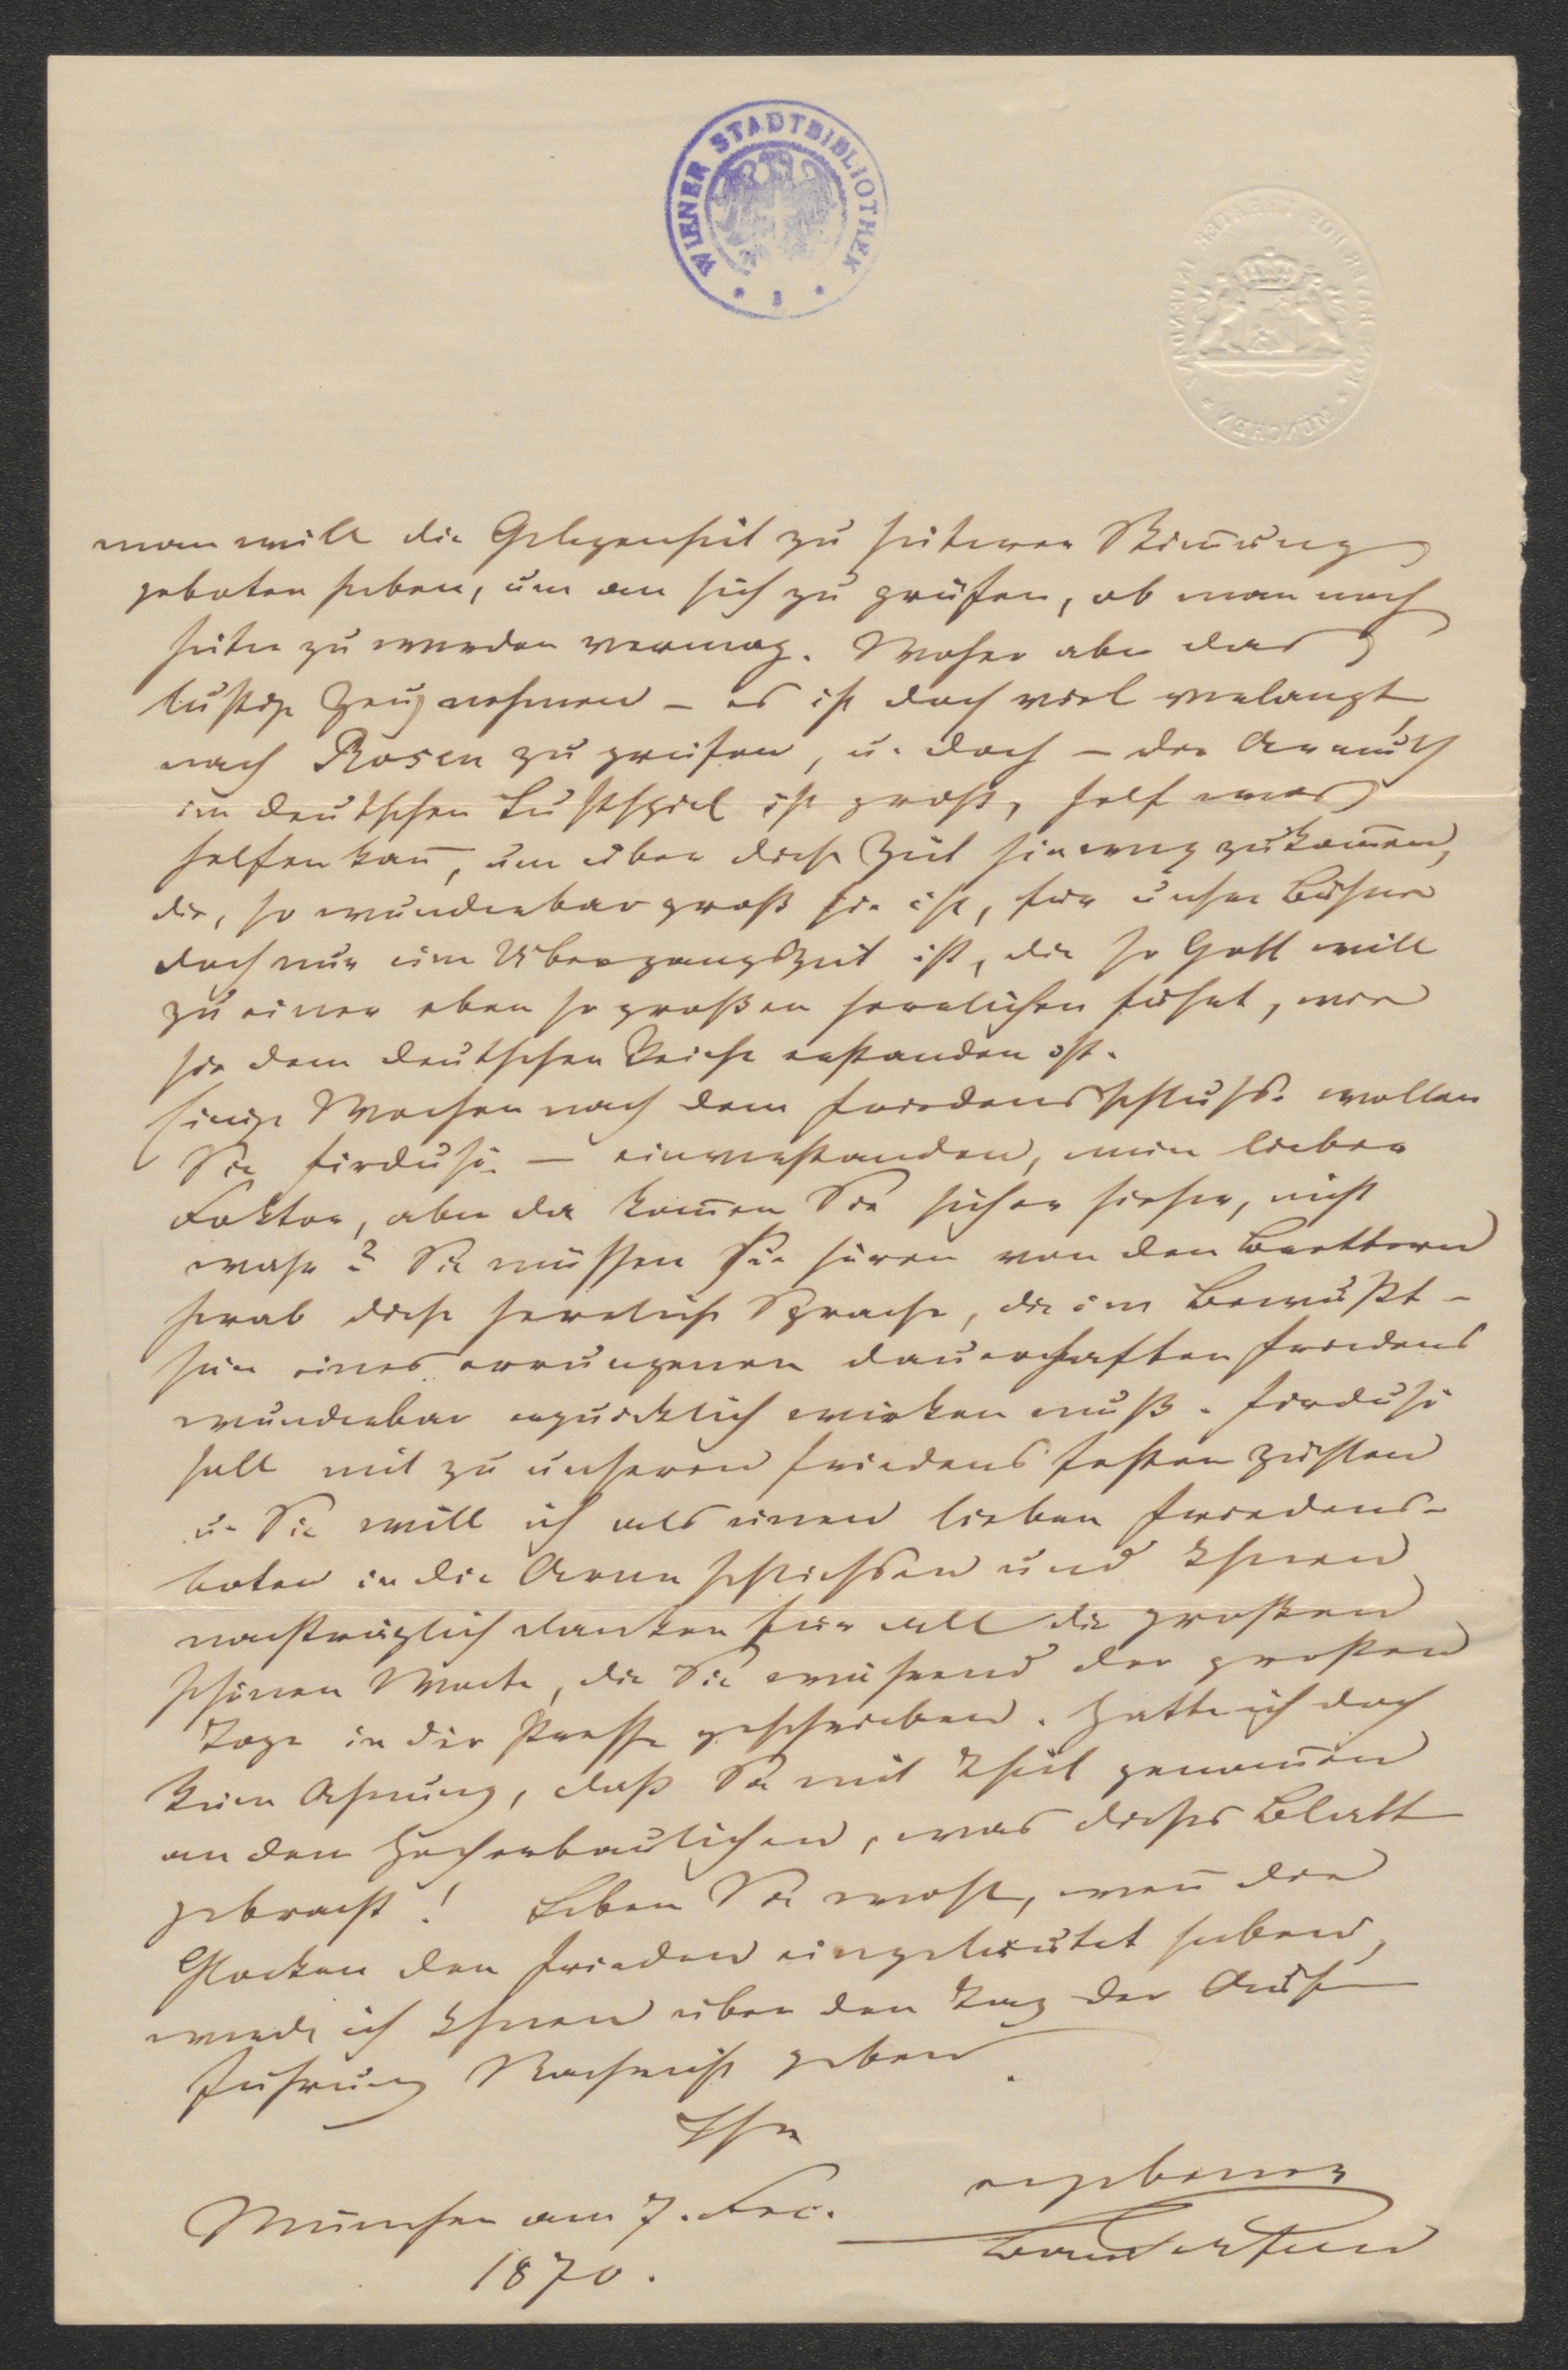 WIENER STADTBIBLIOTHEK
MÜNCHEN
man will die Gelegenheit zu heiterer Stimmung
geboten haben, um an sich zu prüfen, ob man noch
heiter zu werden vermag. Woher aber das
lustige Zeug nehmen – es ist doch viel verlangt,
nach Rosen zu greifen, u. doch – die Armuth
im deutschen Lustspiel ist groß, helf was
helfen kann, um über diese Zeit hinweg zukommen,
die, so wunderbar groß sie ist, für unsere Bühne
doch nur eine Übergangszeit ist, die so Gott will
zu einer eben so großen herrlichen führt, wie
sie dem deutschen Reiche erstanden ist.
Einige Wochen nach dem Friedensschlusse wollen
Sie Firdusi – einverstanden, mein lieber
Doktor, aber da kommen Sie sicher hieher, nicht
wahr? Sie müssen sie hören von den Brettern
herab diese herrliche Sprache, die im Bewußt-
sein eines errungenen dauerhaften Friedens
wunderbar erquicklich wirken muß. Firdusi
soll mit zu unseren Friedensfesten zählen
u. Sie will ich als einen lieben Friedens-
boten in die Arme schließen und Ihnen
nachträglich danken für all die großen
schönen Worte, die Sie während der großen
Tage in der Presse geschrieben. Hatte ich doch
keine Ahnung, daß Sie mit Theil genommen
an dem Hocherbaulichen, was dieses Blatt
gebracht! Leben Sie wohl, wenn die
Glocken den Frieden eingeläutet haben,
werde ich Ihnen über den Tag der Auf-
führung Nachricht geben.
Ihr
ergebener
München am 7. Dec.
1870.